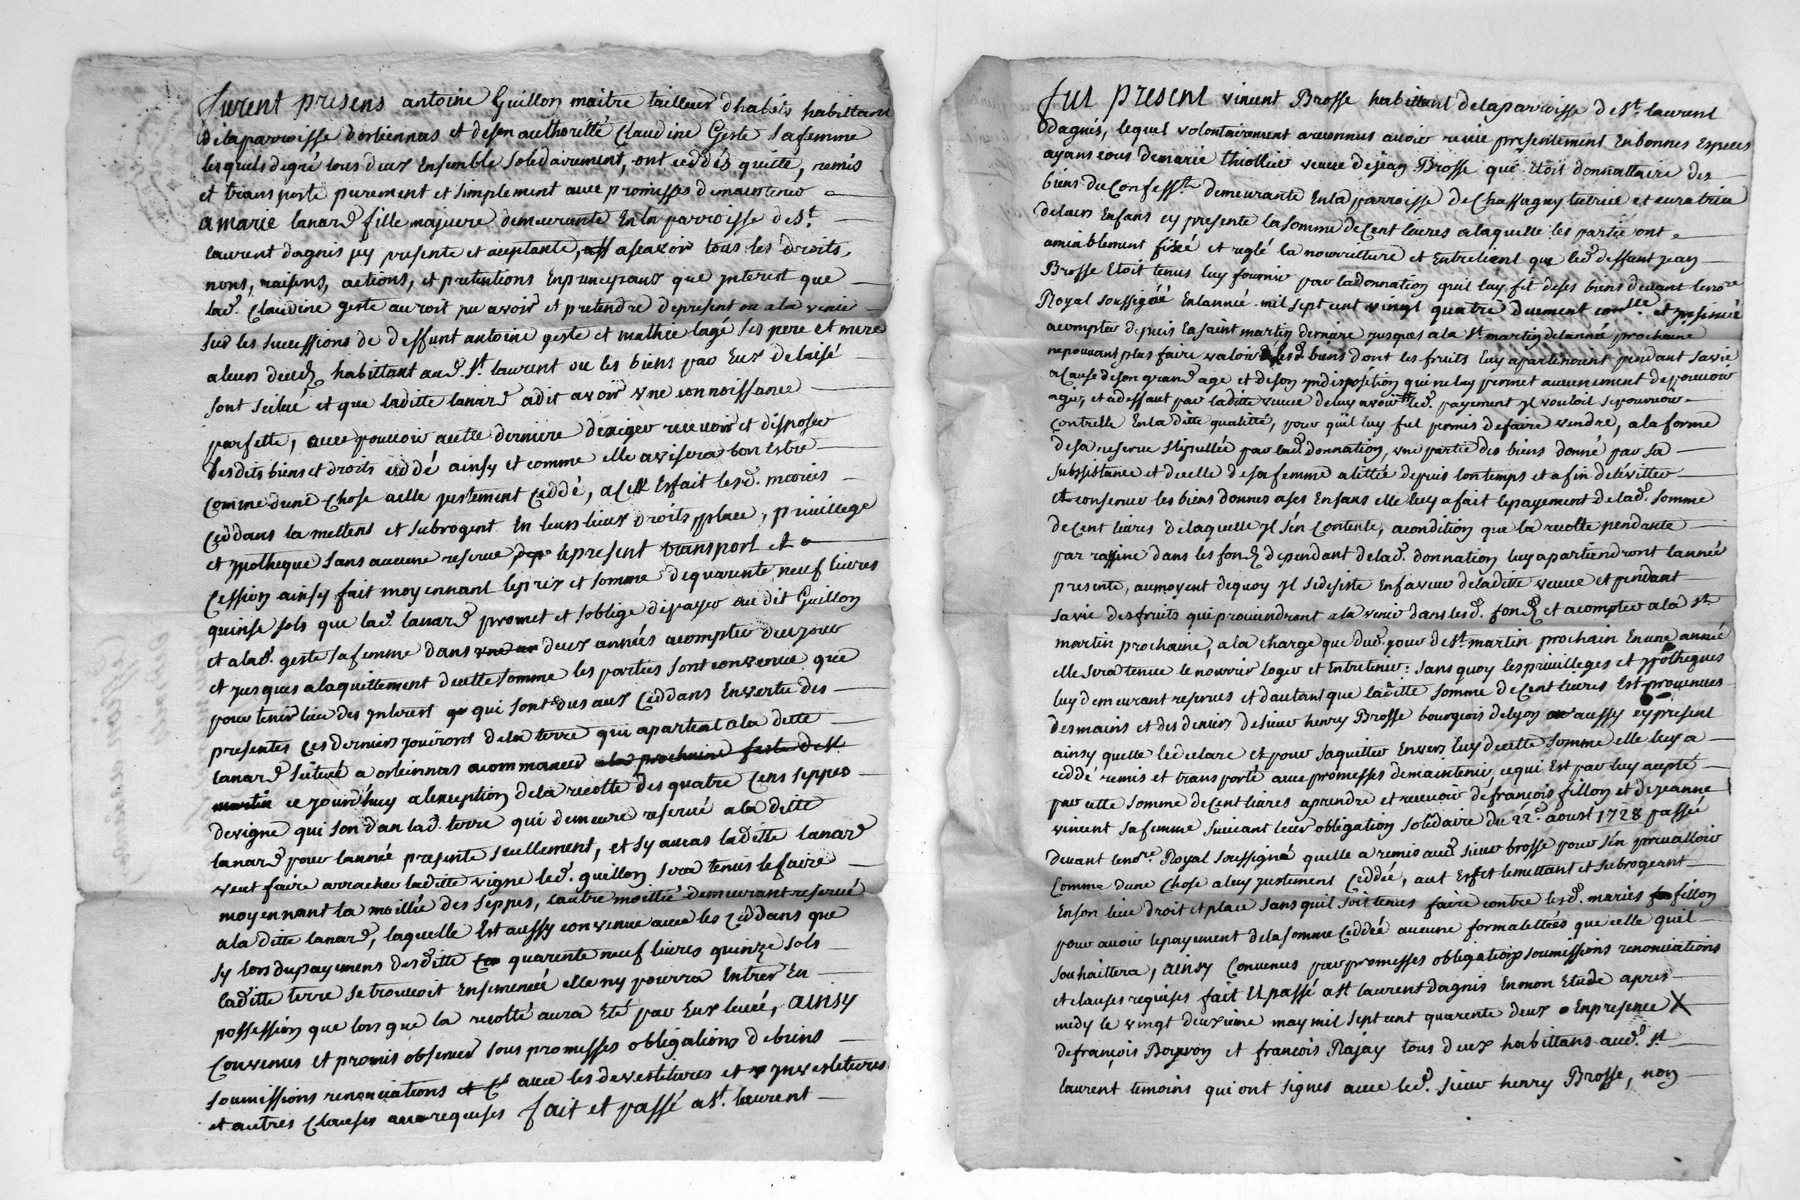 furent presens antoine Guillon maitre tailleur dhabits habittant
delaparroisse dorliennas et deson authorité Claudine Geste sa femme
lesquels degré tous deux Ensemble solidairement, ont ceddés quitte, remis
et transporté purement et simplement avec promesses demaintenir
a marie lanard fille majeure demeurante En la parroisse de St.
laurent dagnis jcy presente et aceptante, ascavoir tous les droits,
noms, raisons, actions, et pretentions Enprincypaux que Jnterest que
lad. Claudine geste auroit pu avoir et pretendre depresent ou a la venir
sur les successions de deffunt antoine geste et mathie lagé ses pere et mere
a leurs deced habittant aud. St. laurent ou les biens par Eux delaisé
sont scitué et que laditte lanard a dit avoir vne connoissance
parfette, avec pouvoir a ette derniere dexiger recevoir et disposer
desdits biens et droits ceddé ainsy et comme elle avisera bon Estre
comme dune Chose a elle justement Ceddé, a cett Esfait lesd. mariés
Ceddans la mettent et subrogent En leurs lieux droits place, privillege
et ypotheque sans aucune reserve le present transport et
Cession ainsy fait moyennant le prix et somme de quarente neuf livres
quinse sols que lad. lanard promet et soblige de payer au dit Guillon
et a lad. geste sa femme dans deux années a compter de ce jour
et jusques alaquittement decette somme les parties sont convenue que
pour tenir lieu des Jnterest qui sont dus aux Ceddans En vertu des
presentes Ces derniers jouiront de la terre qui apartient a la ditte
lanard scitué a orliennas a commancer a la prochaine feste de St
martin ce jourdhuy a lexception de la recolte des quatre Cens seppes
de vigne qui son dan lad. terre qui demeure reservé a la ditte
lanard pour lannée presente seullement, et sy aucas laditte lanard
veut faire arracher laditte vigne led. guillon sera tenus le faire
moyennant la moittié des seppes, lautre moittié demeurant reservé
a la ditte lanard, laquelle Est aussy convenue avec les Ceddans que
sy lors du payement desditte quarente neuf livres quinze sols
laditte terre se trouvoit Ensemencée elle ny pourra Entrer En
possession que lors que la recolté aura Eté par Eux levée, ainsy
Convenus et promis observer sous promesses obligations debiens
soumissions renonciations avec les devestitures et Jnvestitures
et autres Clauses requises fait et passé a St. laurent
fut present vincent Brosse habittant delaparroisse de St. laurent
dagnis, lequel volontairement a reconnus avoir recue presentement En bonnes Especes
ayans cours de marie thiollier veuve de jean Brosse qui Etoit donnattaire des
biens du Confesst. demeurante En la parroisse de Chassagny tutrice et curatrice
de leurs Enfans cy presente la somme de Cent livres a laquelle les partie ont
amiablement fixé et reglé la nourriture et Entretient que led. deffunt jean
Brosse Etoit tenus luy fournir par la donnation quil luy fit de ses biens devant lenore
Royal soussigné En lannée mil sept cent vingt quatre duement conllé. et jnsinué
a compter depuis la saint martin derniere jusques a la St. martin de lannée prochaine
ne pouvant plus faire valoir lesd. biens dont les fruits luy apartenoient pendant sa vie
a Cause de son grand age et de son Jndisposition qui ne luy permet aucunement de pouvoir
agir, et a deffaut par laditte veuve de luy avoir led. payement Jl vouloit se pourvoir
Contrelle En la ditte qualité, pour quil luy fut permis de faire vendre, a la forme
de sa reserve stipullée par lad. donnation, vne partie des biens donné par sa
subsistance et de celle de sa femme alittée depuis lontemps et a fin deleviter
et conserver les biens donnes a ses Enfans elle luy a fait le payement de lad. somme
de Cent livres de laquelle Jl sen Contente, a condition que la recolte pendante
par rassine dans les fond dependant de lad. donnation luy apartiendront lannée
presente, au moyent de quoy Jl se desiste En faveur de laditte veuve et pendant
sa vie des fruits qui proviendront a la venir dans lesd. fond et a compter a la St.
martin prochaine, a la charge que dud. jour de St. martin prochain En une année
elle sera tenue le nourrir loger et Entretenir: sans quoy les privilleges et ypotheques
luy demeurant reservés et dautant que laditte somme de Cent livres Est provenues
des mains et des deniers de sieur henry Brosse bourgeois de lyon aussy cy present
ainsy quelle le declare et pour saquitter Envers luy de cette somme elle luy a
ceddé remis et transporté avec promesses de maintenir ce qui Est par luy acepté
par cette somme de Cent livres a prendre et recevoir de francois fillon et de jeanne
vincent sa femme suivant leur obligation solidaire du 22e. aoust 1728 passé
devant lenore. Royal soussigné quelle a remis aud. sieur brosse pour sen prevalloir
Comme dune Chose a luy justement Ceddée, a cet Esfet le mettant et subrogeant
En son lieu droit et place sans quil soit tenus faire contre lesd. mariés fillon
pour avoir le payement de la somme Ceddéé aucune formalettées que celle quil
souhaittera, ainsy Convenus par promesses obligations soumissions renonciations
et clauses requises fait Et passé a St. laurent dagnis En mon Etude apres
midy le vingt deuxieme may mil sept cent quarente deux En presence X
de françois Boyron et francois Rajay tous deux habittans aud. St.
laurent temoins qui ont signes avec led. sieur henry Brosse, non